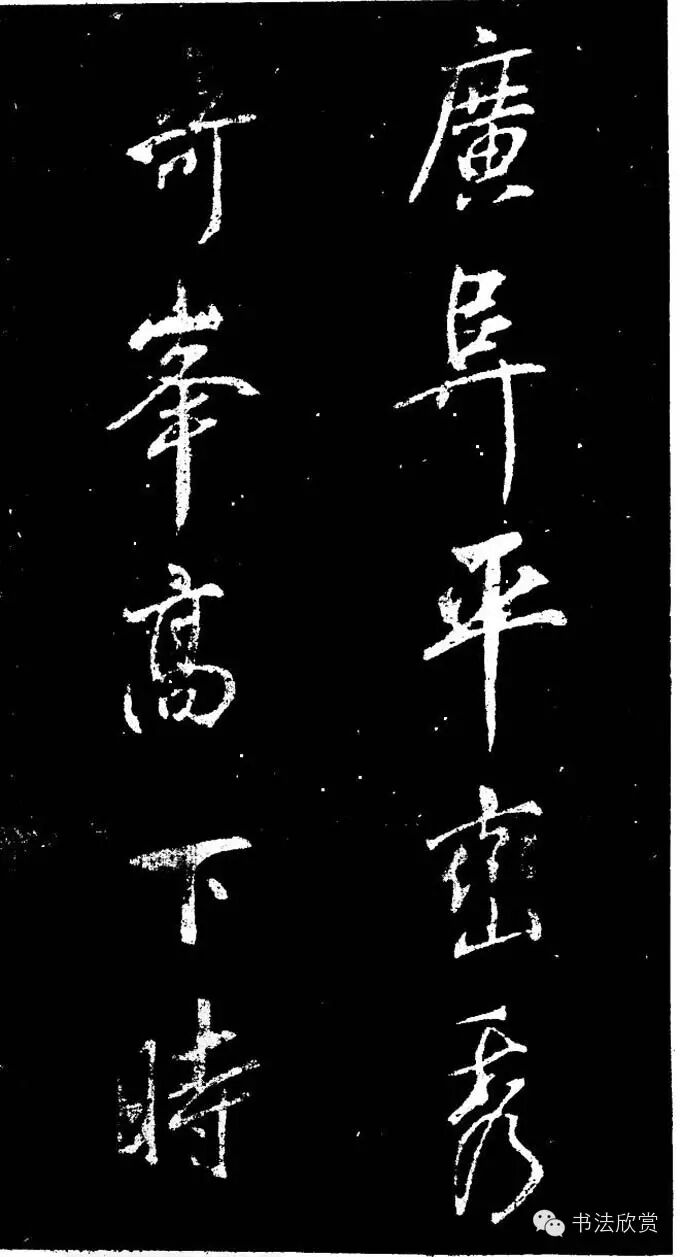 廣阜平巒秀
奇峯高下時
书法欣赏